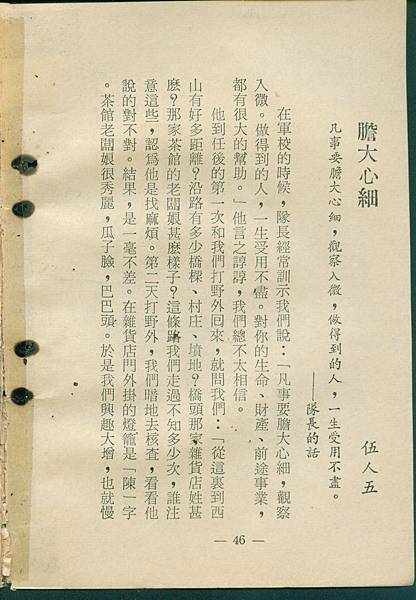 膽大心細
伍人五
凡事要膽大心細，觀察入微，做得到的人，一生受用不盡。
——隊長的話
在軍校的時候，隊長經常訓示我們說：「凡事要膽大心細，觀察
入微。做得到的人，一生受用不盡。對你的生命、財產、前途事業，
都有很大的幫助。」他言之諄諄，我們總不太相信。
他到任後的第一次和我們打野外回來，就問我們：「從這裏到西
山有好多距離？沿路有多少橋樑、村庄、墳地？橋頭那家雜貨店姓甚
麽？那家茶館的老闆娘甚麽樣子？這條路我們走過不知多少次，誰注
意這些，認爲他是找麻煩。第二天打野外，我們暗地去核査，看看他
說的對不對。結果，是一毫不差。在雜貨店門外掛的燈籠是「陳一字
。茶館老闆娘很秀麗，瓜子臉，巴巴頭。於是我們興趣大增，也就慢
— 46 —